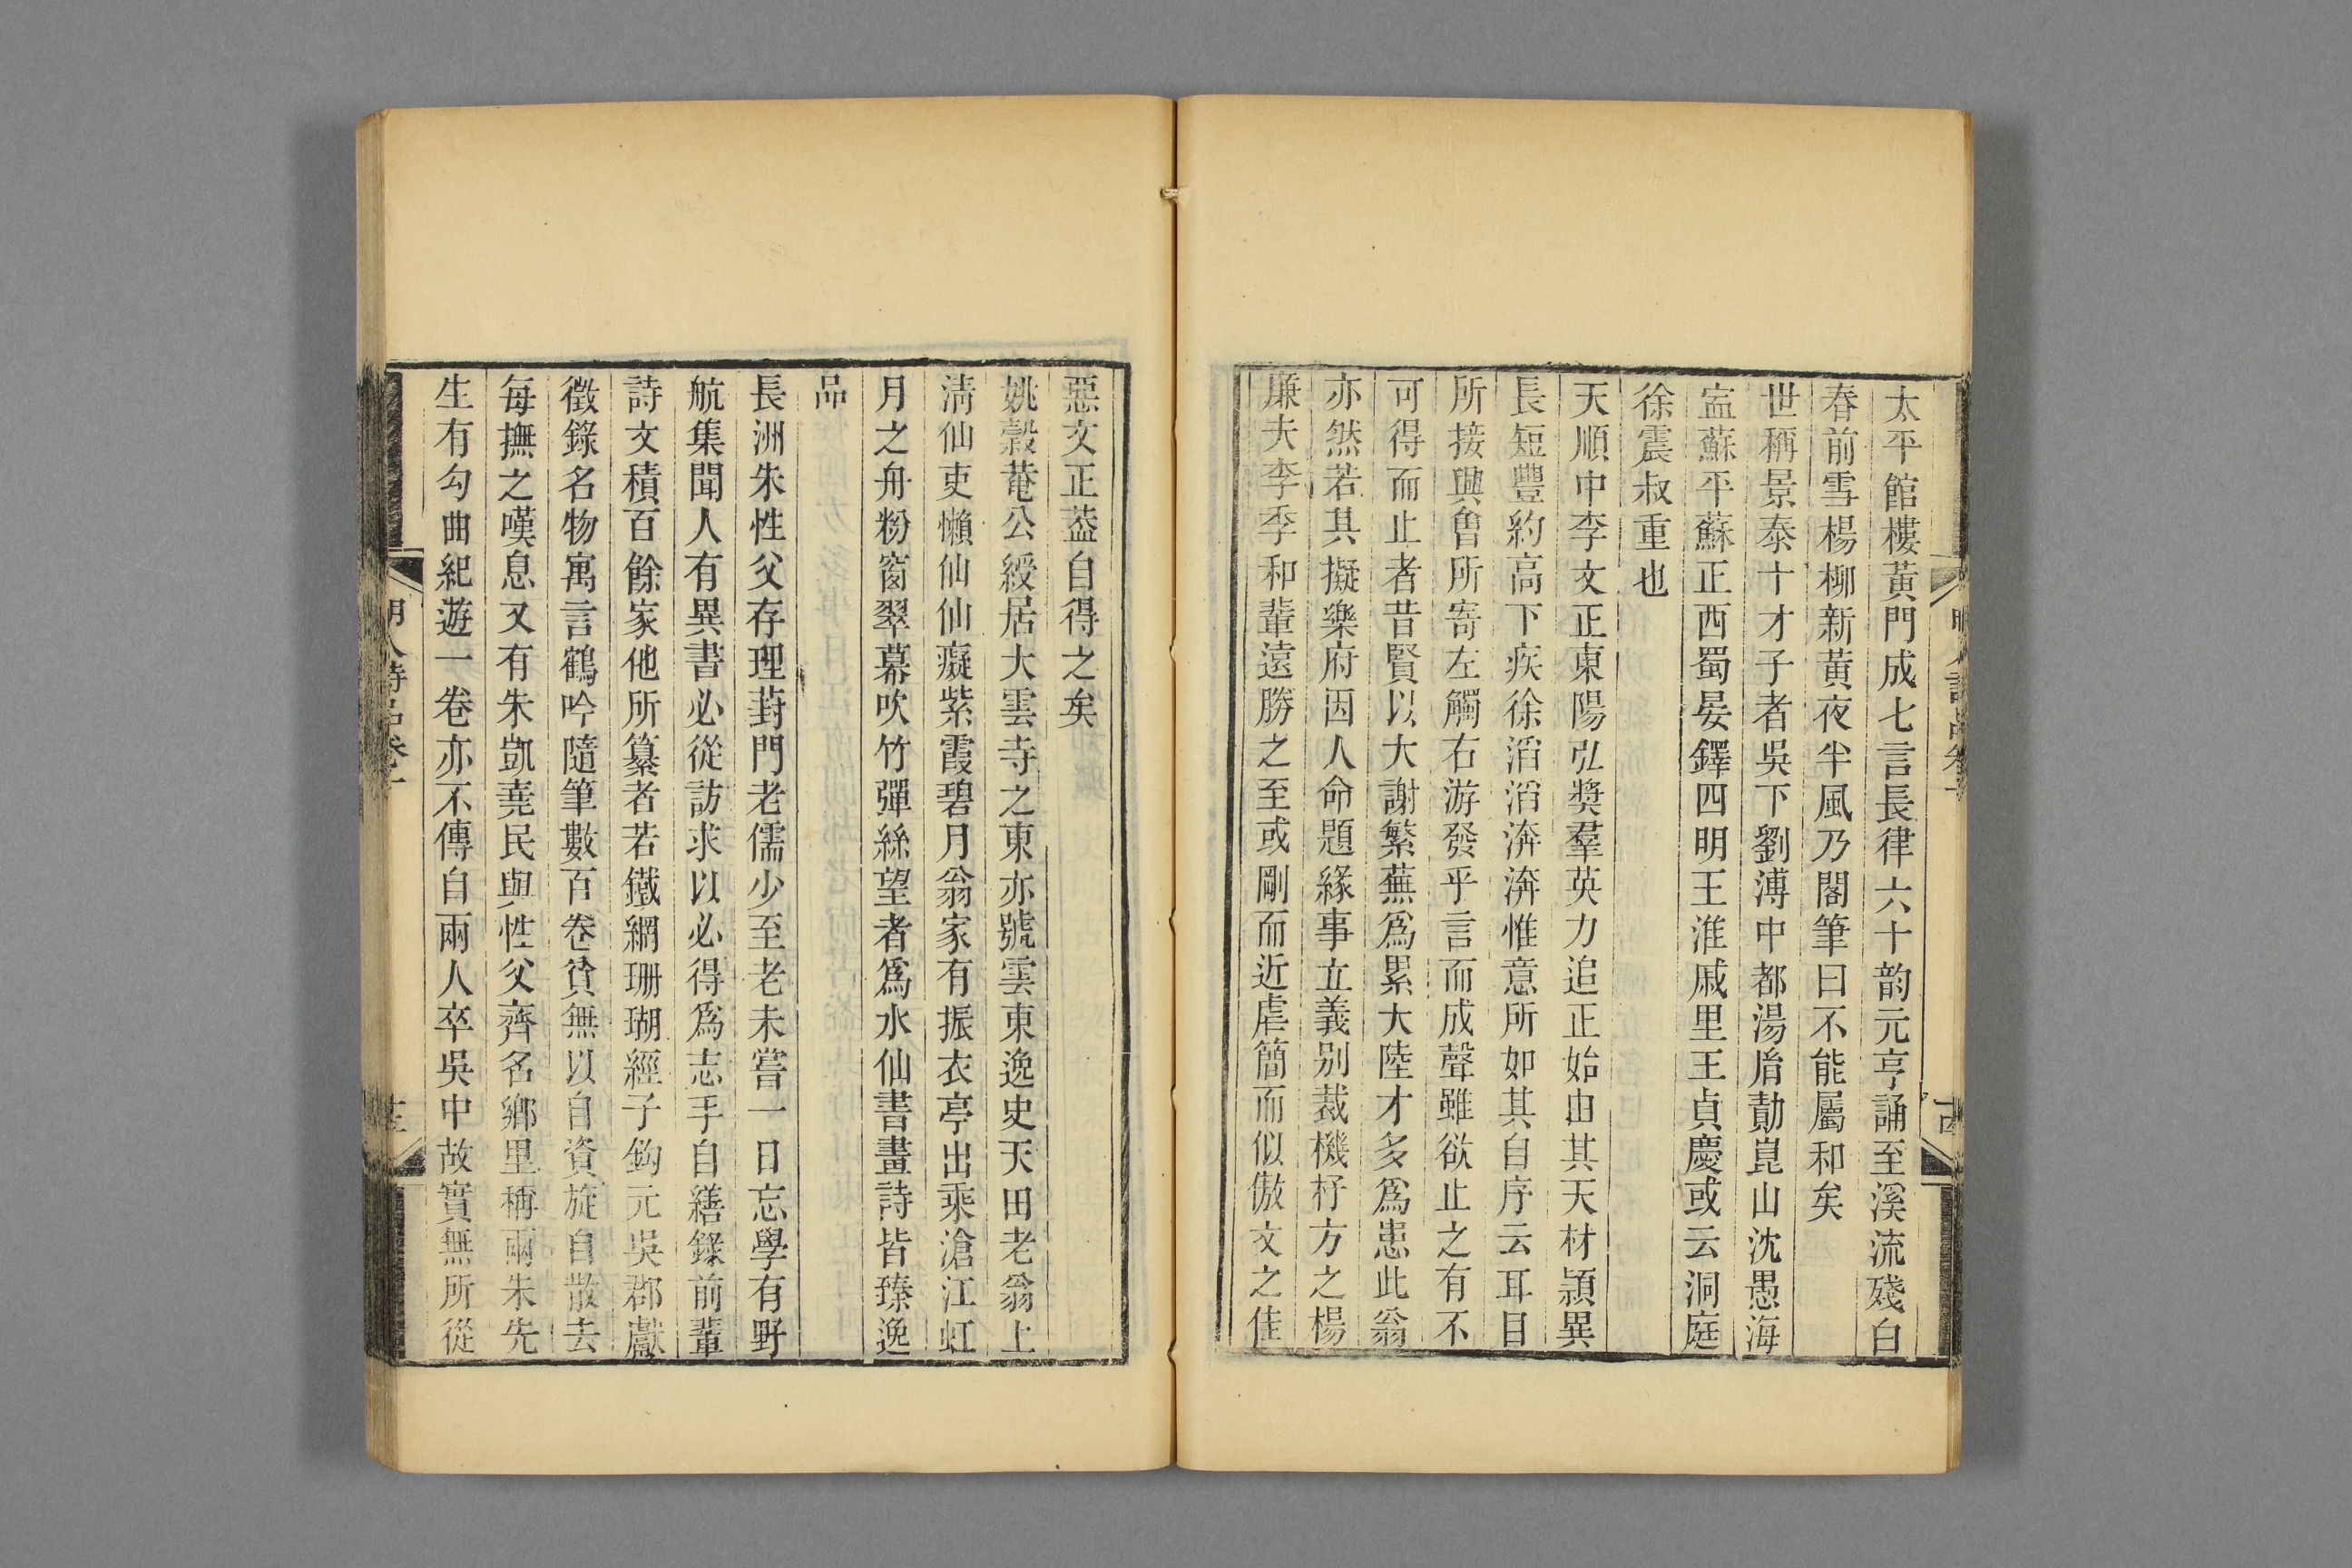 太平館樓黃門成七言長律六十韵元亨誦至溪流殘白
春前雪楊柳新黃夜半風乃閣筆曰不能屬和矣
世稱景泰十才子者吳下劉溥中都湯胤勣崑山沈愚海
寍蘇平蘇正西蜀晏鐸四明王淮戚里王貞慶或云洞庭
徐震叔重也
天順中李文正東陽弘獎羣英力追正始由其天材頴異
長短豐約高下疾徐滔滔渀渀惟意所如其自序云耳目
所接興會所寄左觸右游發乎言而成聲雖欲止之有不
可得而止者昔賢以大謝繁蕪爲累大陸才多爲患此翁
亦然若其擬樂府因人命題緣事立義别裁機杼方之楊
廉夫李季和輩遠勝之至或剛而近虐簡而似傲文之佳
惡文正葢自得之矣
姚穀菴公綬居大雲寺之東亦號雲東逸史天田老翁上
淸仙吏懶仙仙癡紫霞碧月翁家有振衣亭出乘滄江虹
月之舟粉窗翠幕吹竹彈絲望者爲水仙書畫詩皆臻逸
品
長洲朱性父存理葑門老儒少至老未嘗一日忘學有野
航集聞人有異書必從訪求以必得爲志手自繕錄前輩
詩文積百餘家他所纂者若鐵網珊瑚經子鈎元吳郡獻
徵錄名物寓言鶴吟隨筆數百卷貧無以自資旋自散去
每撫之嘆息又有朱凱堯民與性父齊名鄉里稱兩朱先
生有勾曲紀遊一卷亦不傳自兩人卒吳中故實無所從